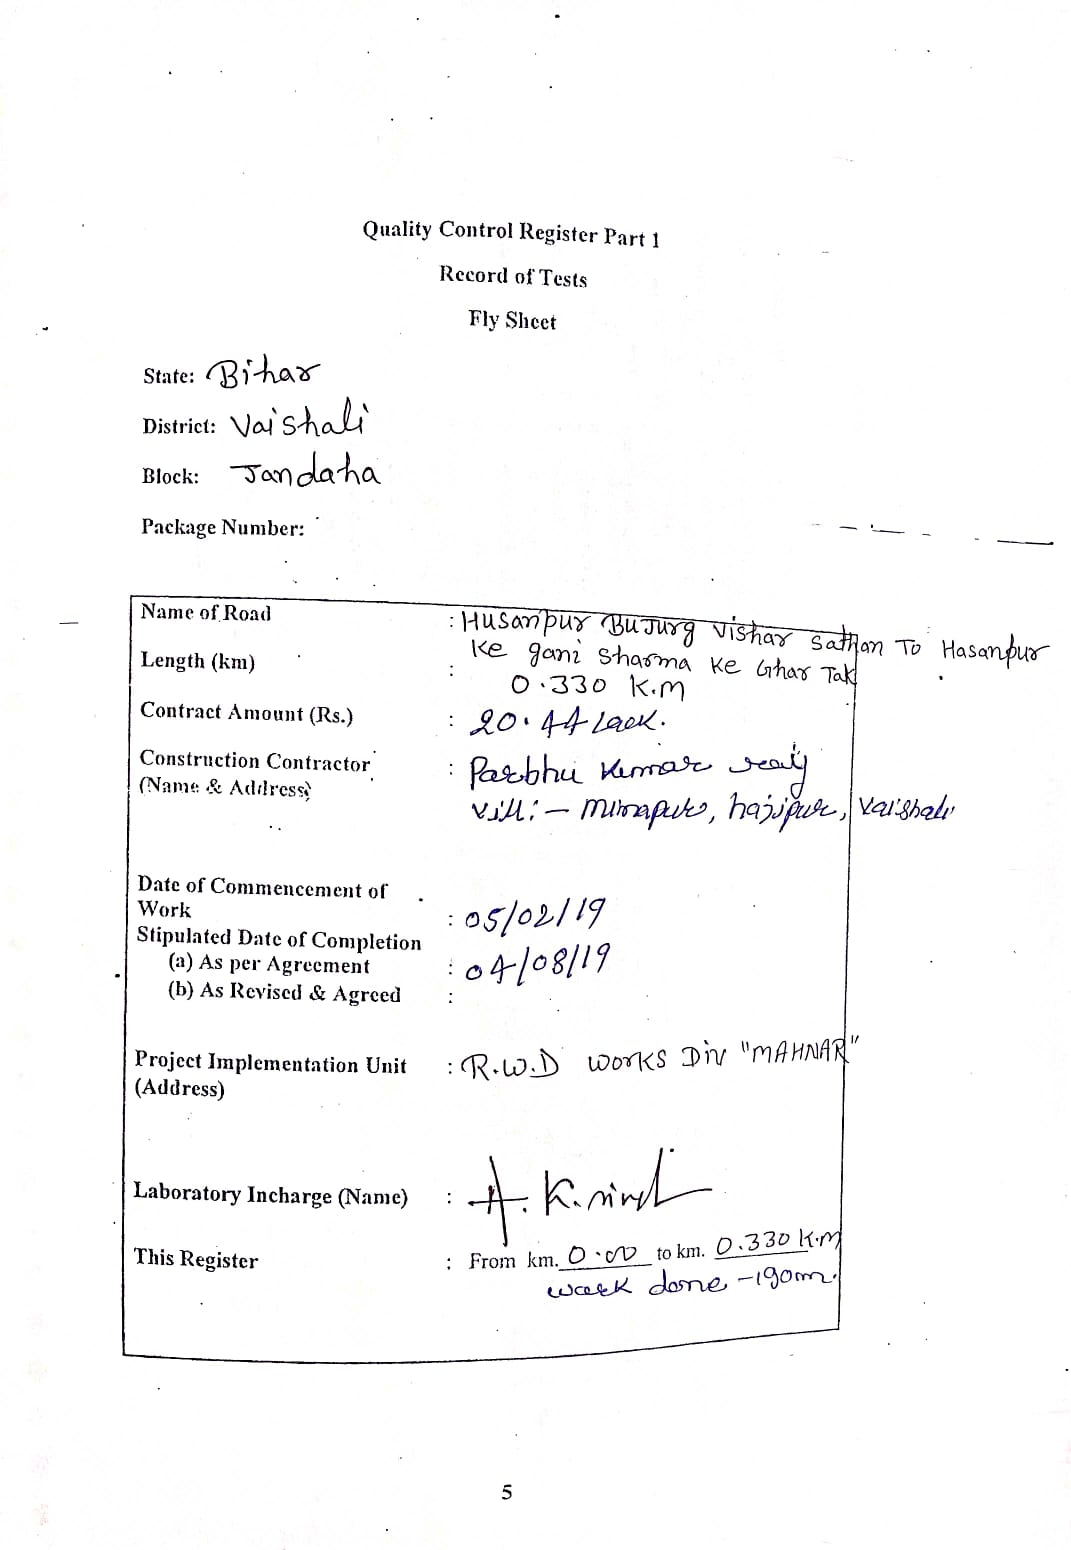 Quality Control Register Part 1
Record of Tests
Fly Sheet
State: Bihar
District: Vaishali
Block: Jandaha
Package Number:
Name of Road : Husanpur Bujurg Vishar Sathan To Hasanpur
ke gani Sharma ke Ghar Tak
Length (km) : 0.330 K.m
Contract Amount (Rs.) : 20.44 Lack.
Construction Contractor : Parbhu Kumar
(Name & Address) Vill:- Mirapur, hajipur, Vaishali
Date of Commencement of
Work : 05/02/19
Stipulated Date of Completion
(a) As per Agreement : 04/08/19
(b) As Revised & Agreed :
Project Implementation Unit : R.W.D WORKS DIV "MAHNAR"
(Address)
Laboratory Incharge (Name) : A. K.
This Register : From km. 0.00 to km. 0.330 K.M
work done -190m.
5